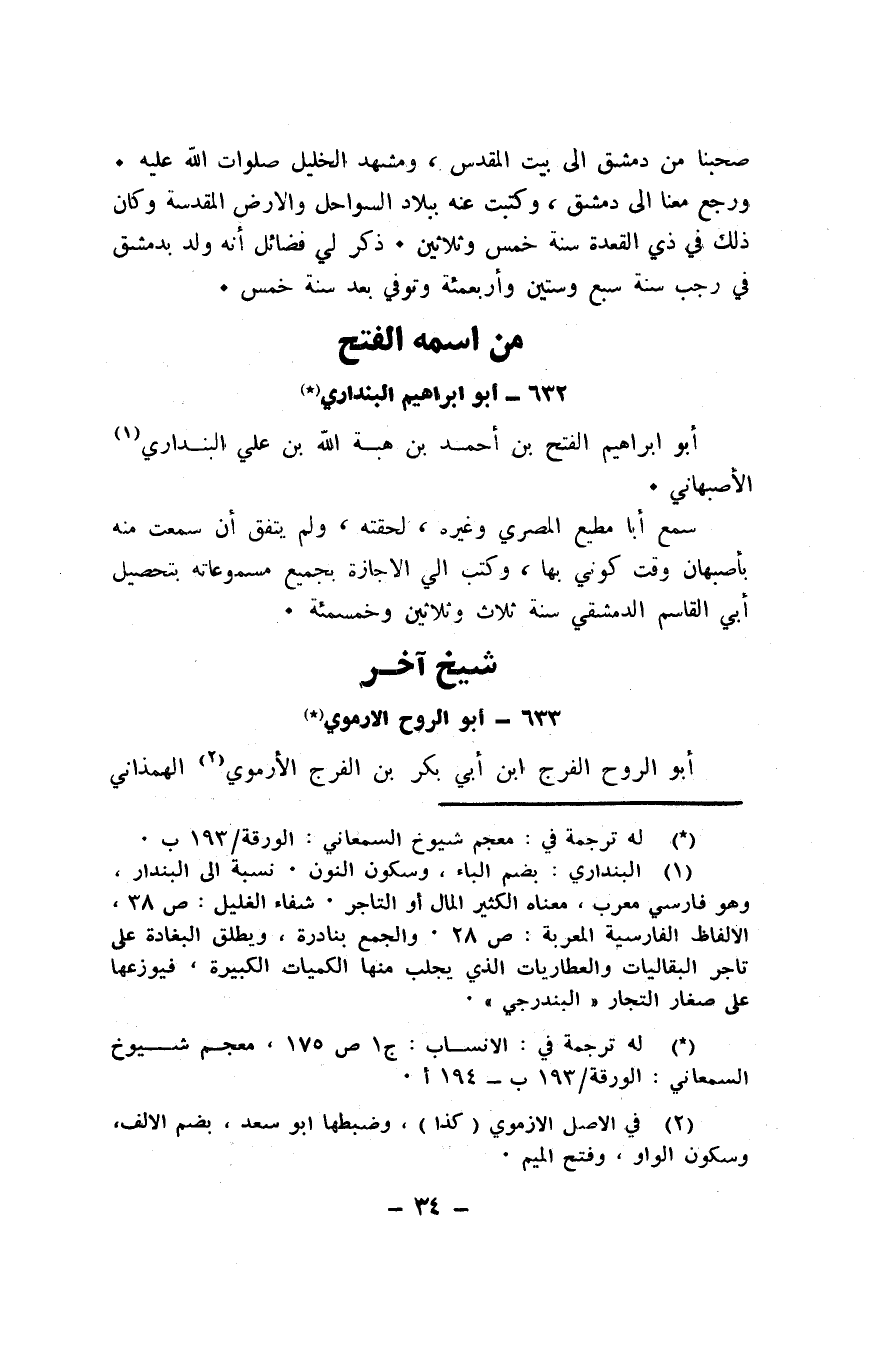 صحبنا من دمشق الى بيت المقدس ، ومشهد الخليل صلوات الله عليه ٠
ورجع معنا الى دمشق ، وكتبت عنه ببلاد السواحل والارض المقدسة وكان
ذلك في ذي القعدة سنة خمس وثلاثين ٠ ذكر لي فضائل أنه ولد بدمشق
في رجب سنة سبع وستين وأربعمئة وتوفي بعد سنة خمس ٠
من اسمه الفتح
٦٣٢ ــ أبو ابراهيم البنداري(*)
أبو ابراهيم الفتح بن أحمــد بن هبــة الله بن علي البنــداري(١)
الأصبهاني ٠
سمع أبا مطيع المصري وغيره ، لحقته ، ولم يتفق أن سمعت منه
بأصبهان وقت كوني بها ، وكتب الي الاجازة بجميع مسموعاته بتحصيل
أبي القاسم الدمشقي سنة ثلاث وثلاثين وخمسمئة ٠
شيخ آخــر
٦٣٣ ــ أبو الروح الارموي(*)
أبو الروح الفرج ابن أبي بكر بن الفرج الأرموي(٢) الهمذاني
(*) له ترجمة في : معجم شيوخ السمعاني : الورقة/١٩٣ ب ٠
(١) البنداري : بضم الباء ، وسكون النون ٠ نسبة الى البندار ،
وهو فارسي معرب ، معناه الكثير المال أو التاجر ٠ شفاء الغليل : ص ٣٨ ،
الالفاظ الفارسية المعربة : ص ٢٨ ٠ والجمع بنادرة ، ويطلق البغادة على
تاجر البقاليات والعطاريات الذي يجلب منها الكميات الكبيرة ، فيوزعها
على صغار التجار « البندرجي » ٠
(*) له ترجمة في : الانســاب : ج١ ص ١٧٥ ، معجــم شــــيوخ
السمعاني : الورقة/١٩٣ ب ــ ١٩٤ أ ٠
(٢) في الاصل الازموي ( كذا ) ، وضبطها ابو سعد ، بضم الالف،
وسكون الواو ، وفتح الميم ٠
ــ ٣٤ ــ